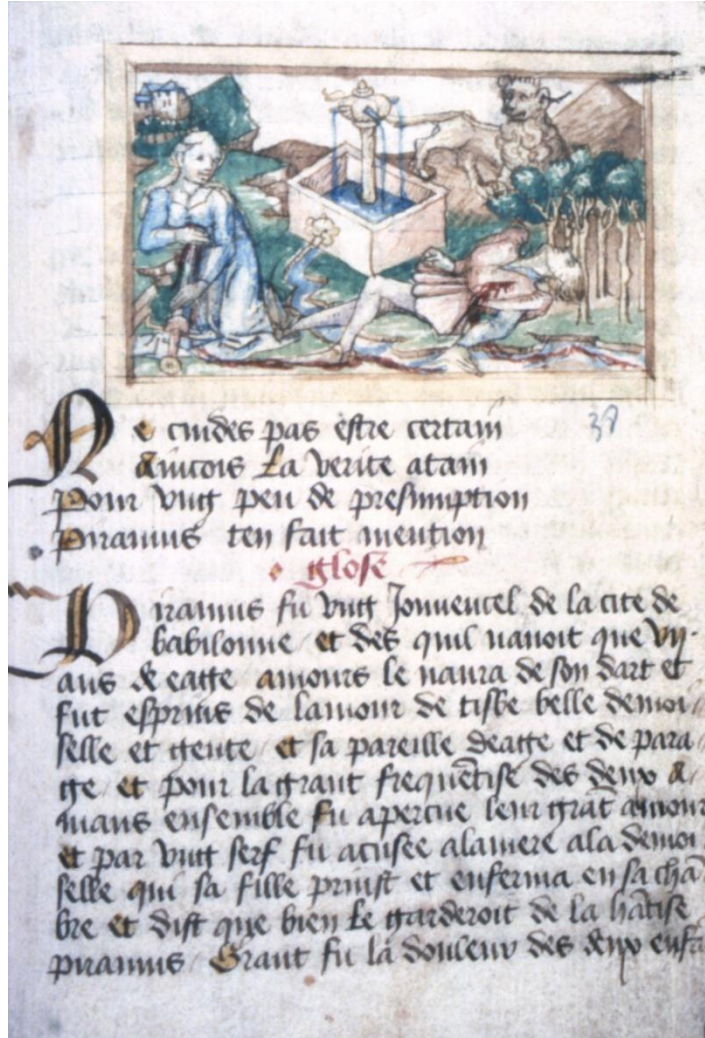 Ne cuides pas estre certain
Aincois la verite atain
Pour vng peu de presumption
Piramus ten fait mention
38
glose
Piramus fu vng Jouuencel de la cite de
babilonne et des quil nauoit que vij.
ans de eage amours le naura de son dart et
fut esprins de lamour de tisbe belle demoi
selle et gente et sa pareille deage et de para
ge et pour la grant frequẽtise des deux a
mans ensemble fu apercue leur grãt amour
et par vng serf fu acusee alamere ala demoi
selle qui sa fille prinst et enferma en sa chã
bre et dist que bien le garderoit de la hãtise
piramus Grant fu la douleur des deux enfã